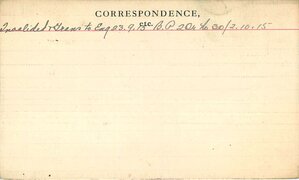 CORRESPONDENCE,
Invalided & Trans to Eng 23.9.15 B.P 204 to 30/2.10.15